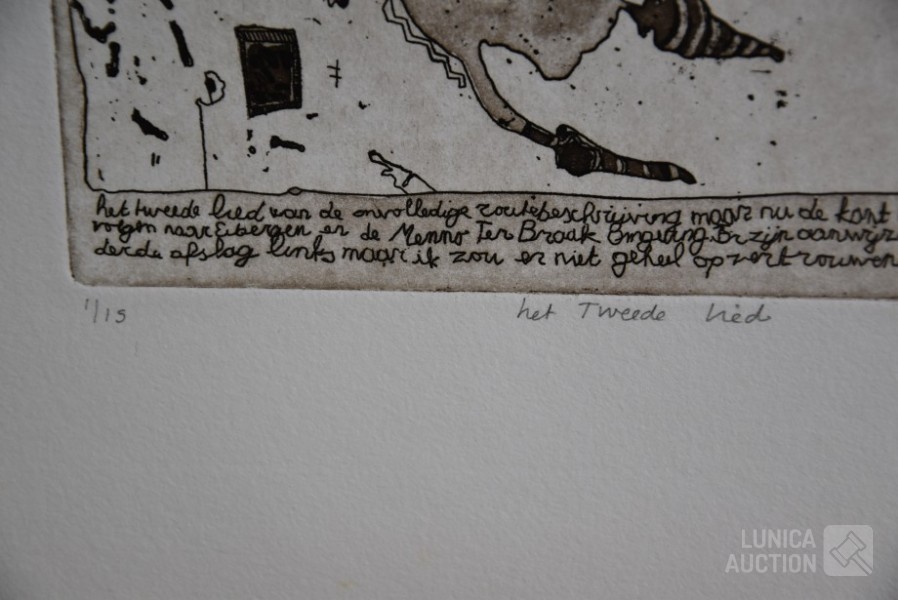 het tweede lied van de onvolledige routebeschrijving maar nu de kant
volgen naar Eibergen en de Menno Ter Braak Omgeving. Er zijn aanwijz
derde afslag links maar ik zou er niet geheel op vertrouwen
1/15
het Tweede lied
LUNICA
AUCTION